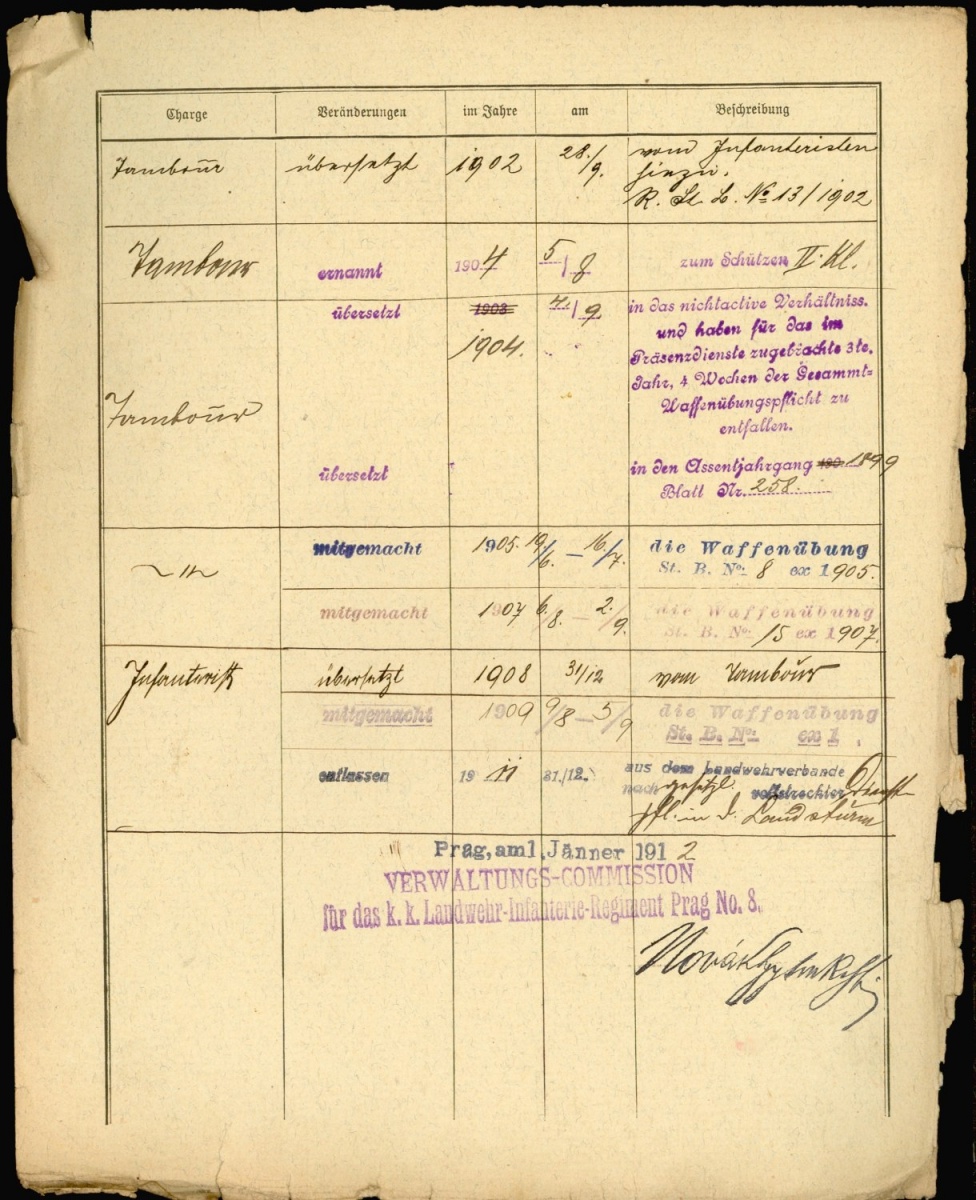 Charge Veränderungen im Jahre am Beschreibung
Tambour übersetzt 1902 28./9. vom Infanteristen
hiezu.
R. St. B. No 13/1902
Tambour ernannt 1904 5/8 zum Schützen II. Kl.
übersetzt 1903 4./9 in das nichtactive Verhältniss.
1904. und haben für das im
Präsenzdienste zugebrachte 3te.
Jahr, 4 Wochen der Gesammt=
Tambour Waffenübungspflicht zu
entfallen.
übersetzt in den Assentjahrgang 190 1899
Blatt Nr. 258.
-"- mitgemacht 1905. 19/6. — 16./7. die Waffenübung
St. B. No: 8 ex 1905.
mitgemacht 1907 6./8. — 2./9. die Waffenübung
St. B. No: 15 ex 1907.
Infanterist übersetzt 1908 31/12 vom Tambour
mitgemacht 1909 9/8 — 5/9 die Waffenübung
St. B. No: ex 1 .
entlassen 19 11 31./12. aus dem Landwehrverbande
nach gesetzl. vollstreckter Dienst
pfl. in d. Landsturm
Prag, am 1. Jänner 1912
VERWALTUNGS-COMMISSION
für das k. k. Landwehr-Infanterie-Regiment Prag No. 8.
Novák